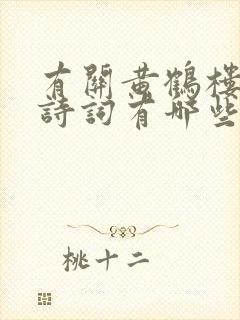 有關黃鶴樓
詩詞有哪些
桃十二